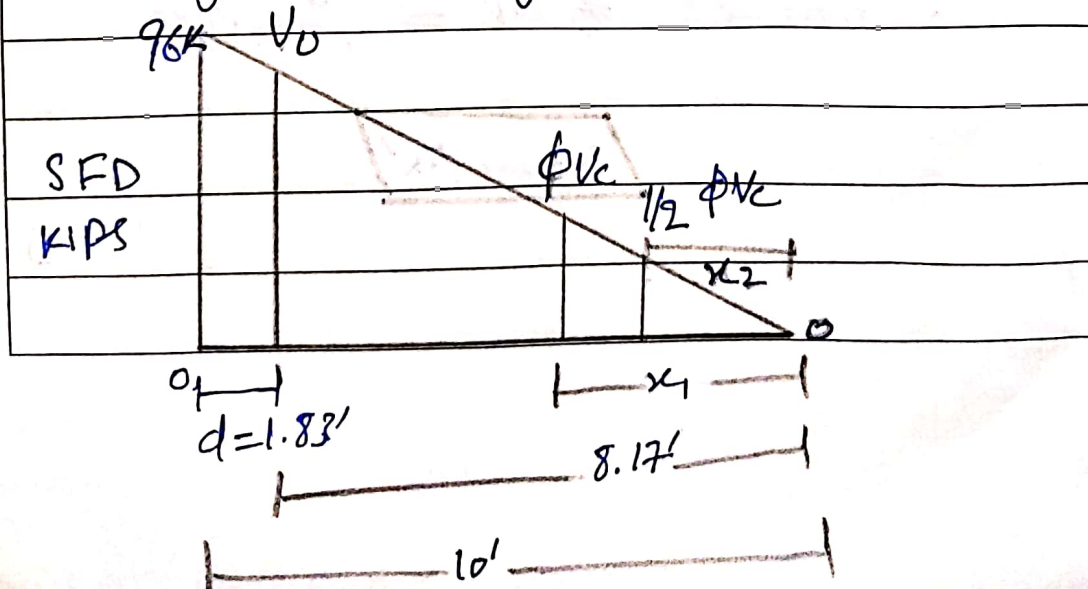 96K VU
SFD
KIPS
ϕVc
1/2 ϕVc
x2
0
0
x1
d=1.83'
8.17'
10'